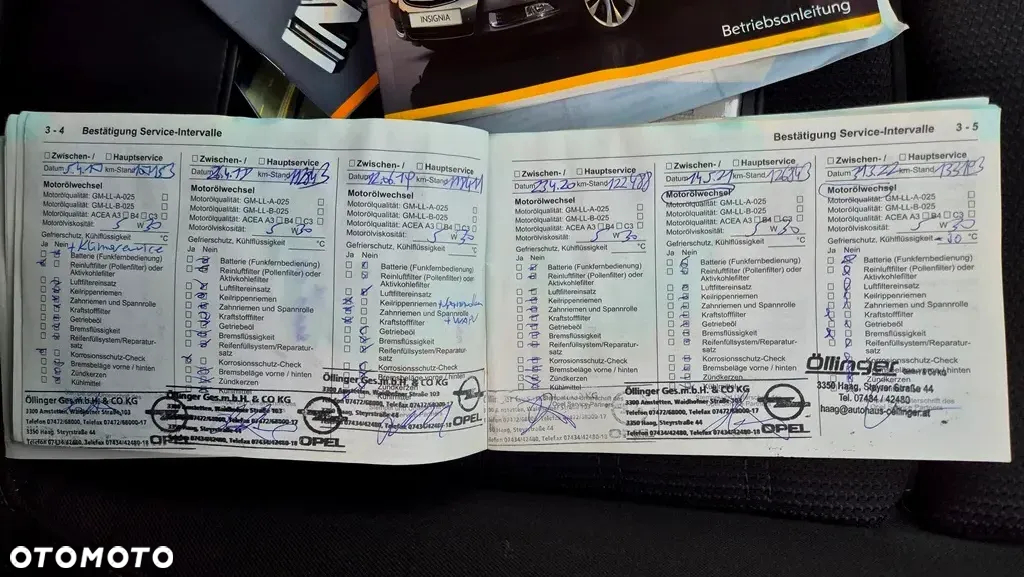 INSIGNIA
Betriebsanleitung
3 - 4 Bestätigung Service-Intervalle
Zwischen- / Hauptservice
Datum km-Stand
Motorölwechsel
Motorölqualität: GM-LL-A-025
Motorölqualität: GM-LL-B-025
Motorölqualität: ACEA A3 B4 C3
Motorölviskosität: 5 W 30
Gefrierschutz, Kühlflüssigkeit °C
Ja Nein + Klimaservice
Batterie (Funkfernbedienung)
Reinluftfilter (Pollenfilter) oder
Aktivkohlefilter
Luftfiltereinsatz
Keilrippenriemen
Zahnriemen und Spannrolle
Kraftstofffilter
Getriebeöl
Bremsflüssigkeit
Reifenfüllsystem/Reparatur-
satz
Korrosionsschutz-Check
Bremsbeläge vorne / hinten
Zündkerzen
Kühlmittel
Öllinger Ges.m.b.H. & CO KG
3300 Amstetten, Waidhofner Straße 103
Telefon 07472/68000, Telefax 07472/68000-17
3350 Haag, Steyrstraße 44
Telefon 07434/42480, Telefax 07434/42480-18
OPEL
Zwischen- / Hauptservice
Datum km-Stand
Motorölwechsel
Motorölqualität: GM-LL-A-025
Motorölqualität: GM-LL-B-025
Motorölqualität: ACEA A3 B4 C3
Motorölviskosität: 5 W 30
Gefrierschutz, Kühlflüssigkeit °C
Ja Nein
Batterie (Funkfernbedienung)
Reinluftfilter (Pollenfilter) oder
Aktivkohlefilter
Luftfiltereinsatz
Keilrippenriemen
Zahnriemen und Spannrolle
Kraftstofffilter
Getriebeöl
Bremsflüssigkeit
Reifenfüllsystem/Reparatur-
satz
Korrosionsschutz-Check
Bremsbeläge vorne / hinten
Zündkerzen
Öllinger Ges.m.b.H. & CO KG
3300 Amstetten, Waidhofner Straße 103
Telefon 07472/68000, Telefax 07472/68000-17
3350 Haag, Steyrstraße 44
Telefon 07434/42480, Telefax 07434/42480-18
OPEL
Zwischen- / Hauptservice
Datum km-Stand
Motorölwechsel
Motorölqualität: GM-LL-A-025
Motorölqualität: GM-LL-B-025
Motorölqualität: ACEA A3 B4 C3
Motorölviskosität: 5 W 30
Gefrierschutz, Kühlflüssigkeit °C
Ja Nein
Batterie (Funkfernbedienung)
Reinluftfilter (Pollenfilter) oder
Aktivkohlefilter
Luftfiltereinsatz
Keilrippenriemen
Zahnriemen und Spannrolle
Kraftstofffilter
Getriebeöl
Bremsflüssigkeit
Reifenfüllsystem/Reparatur-
satz
Korrosionsschutz-Check
Bremsbeläge vorne / hinten
Öllinger Ges.m.b.H. & CO KG
3300 Amstetten, Waidhofner Straße 103
Telefon 07472/68000, Telefax 07472/68000-17
3350 Haag, Steyrstraße 44
Telefon 07434/42480, Telefax 07434/42480-18
OPEL
Bestätigung Service-Intervalle 3 - 5
Zwischen- / Hauptservice
Datum 23.4.20 km-Stand 122488
Motorölwechsel
Motorölqualität: GM-LL-A-025
Motorölqualität: GM-LL-B-025
Motorölqualität: ACEA A3 B4 C3
Motorölviskosität: 5 W 30
Gefrierschutz, Kühlflüssigkeit °C
Ja Nein
Batterie (Funkfernbedienung)
Reinluftfilter (Pollenfilter) oder
Aktivkohlefilter
Luftfiltereinsatz
Keilrippenriemen
Zahnriemen und Spannrolle
Kraftstofffilter
Getriebeöl
Bremsflüssigkeit
Reifenfüllsystem/Reparatur-
satz
Korrosionsschutz-Check
Bremsbeläge vorne / hinten
Zündkerzen
Kühlmittel
Zwischen- / Hauptservice
Datum 14.5.21 km-Stand 126843
Motorölwechsel
Motorölqualität: GM-LL-A-025
Motorölqualität: GM-LL-B-025
Motorölqualität: ACEA A3 B4 C3
Motorölviskosität: 5 W 30
Gefrierschutz, Kühlflüssigkeit °C
Ja Nein
Batterie (Funkfernbedienung)
Reinluftfilter (Pollenfilter) oder
Aktivkohlefilter
Luftfiltereinsatz
Keilrippenriemen
Zahnriemen und Spannrolle
Kraftstofffilter
Getriebeöl
Bremsflüssigkeit
Reifenfüllsystem/Reparatur-
satz
Korrosionsschutz-Check
Bremsbeläge vorne / hinten
Zündkerzen
Öllinger Ges.m.b.H. & CO KG
3300 Amstetten, Waidhofner Straße 103
Telefon 07472/68000, Telefax 07472/68000-17
3350 Haag, Steyrstraße 44
Telefon 07434/42480, Telefax 07434/42480-18
OPEL
Zwischen- / Hauptservice
Datum km-Stand
Motorölwechsel
Motorölqualität: GM-LL-A-025
Motorölqualität: GM-LL-B-025
Motorölqualität: ACEA A3 B4 C3
Motorölviskosität: 5 W 30
Gefrierschutz, Kühlflüssigkeit °C
Ja Nein
Batterie (Funkfernbedienung)
Reinluftfilter (Pollenfilter) oder
Aktivkohlefilter
Luftfiltereinsatz
Keilrippenriemen
Zahnriemen und Spannrolle
Kraftstofffilter
Getriebeöl
Bremsflüssigkeit
Reifenfüllsystem/Reparatur-
satz
Korrosionsschutz-Check
Bremsbeläge vorne / hinten
Öllinger GmbH & Co KG
3350 Haag, Steyrer Straße 44
Tel. 07434 / 42480
haag@autohaus-oellinger.at
OTOMOTO